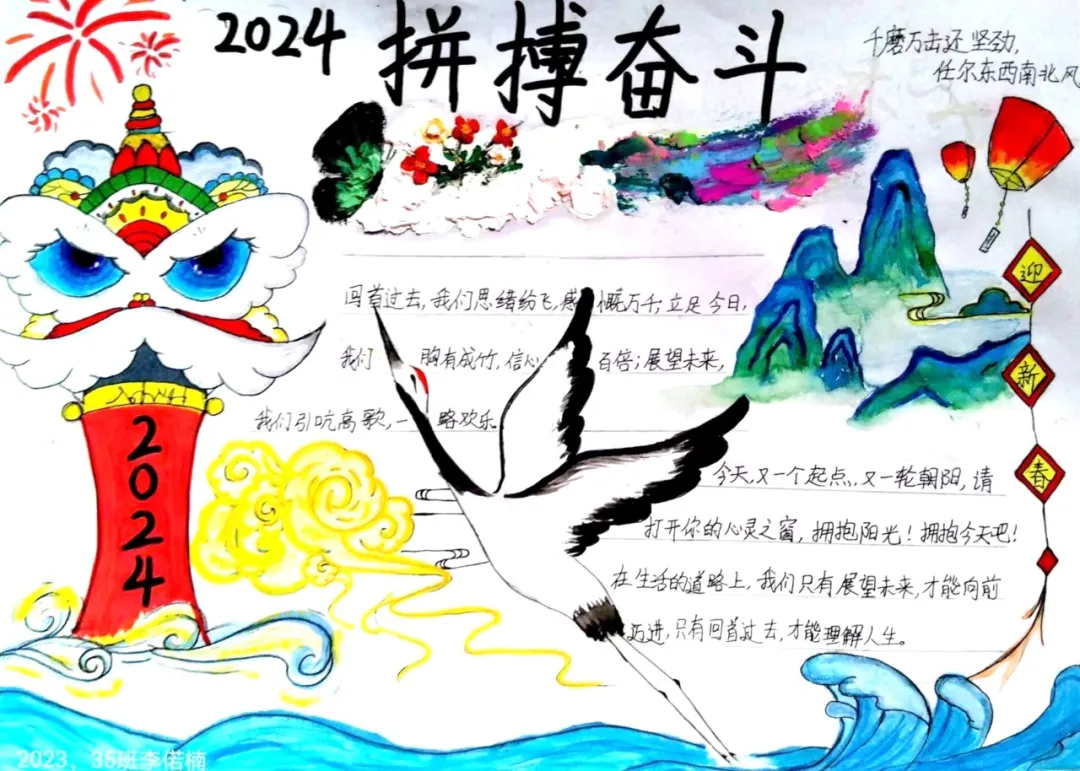 2024 拼搏奋斗
千磨万击还坚劲,
任尔东西南北风
回首过去,我们思绪纷飞,感慨万千;立足今日,
我们 胸有成竹,信心 百倍;展望未来,
我们引吭高歌,一 路欢乐。
迎
新
春
2024
今天,又一个起点,又一轮朝阳,请
打开你的心灵之窗,拥抱阳光!拥抱今天吧!
在生活的道路上,我们只有展望未来,才能向前
迈进,只有回首过去,才能理解人生。
2023，35班李偌楠